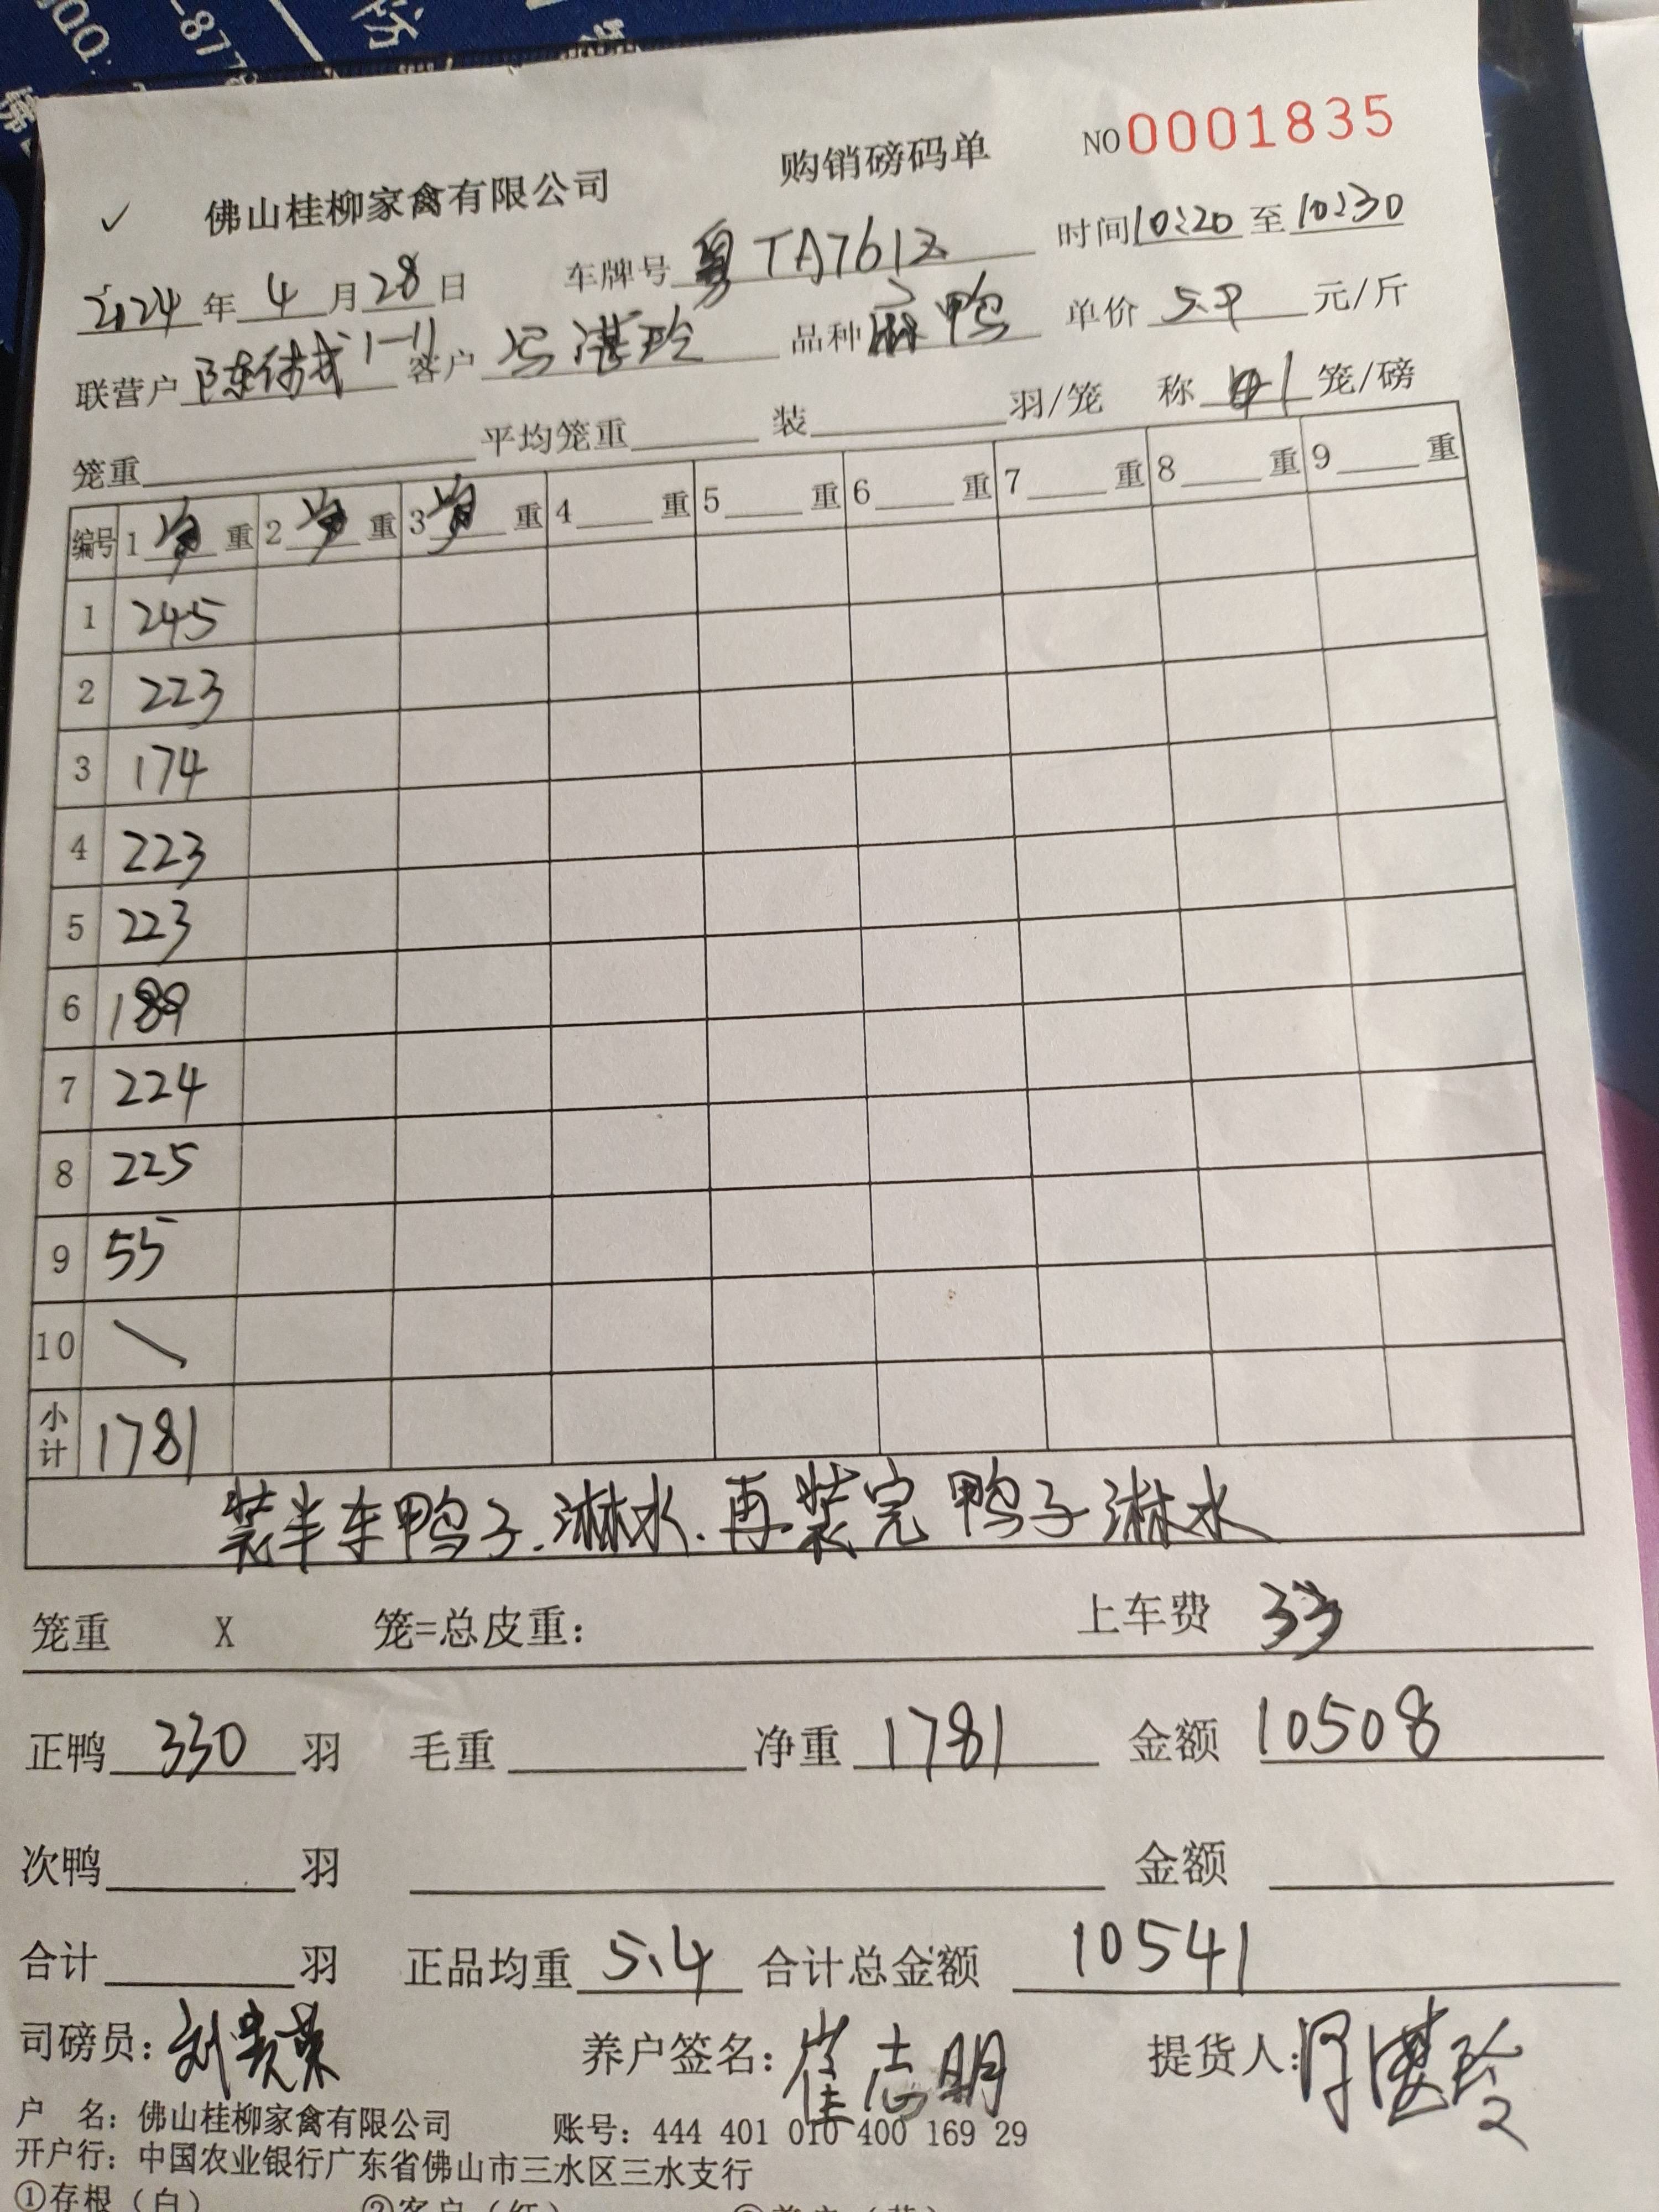 NO 0001835
佛山桂柳家禽有限公司 购销磅码单
2024 年 4 月 28 日 车牌号 粤TA761Z 时间 10:20 至 10:30
联营户 1-11 客户 湛玲 品种 麻鸭 单价 5.9 元/斤
笼重 平均笼重 装 羽/笼 称 笼/磅
编号 1 重 2 重 3 重 4 重 5 重 6 重 7 重 8 重 9 重
1 245
2 223
3 174
4 223
5 223
6 189
7 224
8 225
9 55
10 \
小计 1781
装半车鸭子.淋水.再装完鸭子淋水
笼重 X 笼=总皮重: 上车费 33
正鸭 330 羽 毛重 净重 1781 金额 10508
次鸭 羽 金额
合计 羽 正品均重 5.4 合计总金额 10541
司磅员: 刘贵荣 养户签名: 崔志明 提货人: 湛玲
户 名: 佛山桂柳家禽有限公司 账号: 444 401 010 400 169 29
开户行: 中国农业银行广东省佛山市三水区三水支行
①存根(白) ②客户(红)